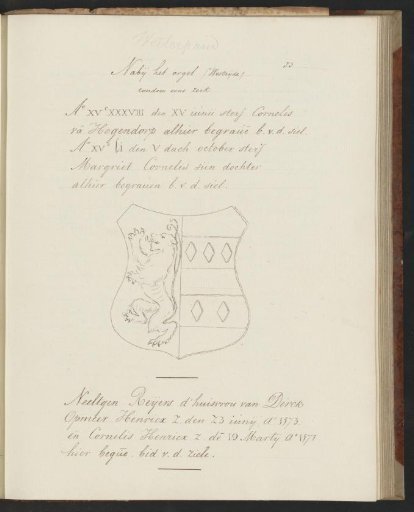 Westerpand
Nabij het orgel (Westzijde) 33
rondom eene zerk
A° XVᶜ XXXVIII den XV iunii sterf Cornelis
vā Hogendorp alhier begrauē b.v.d. siel.
A° XVᶜ LI den V dach october sterf
Margriet Cornelis sin dochter
alhier begrauen b.v.d. siel.
Neeltgen Reyers d'huisvrou van Dirck
Opmeer Henricx Z. den 23 iuny A° 1573
en Cornelis Henricx Z. dē 19 Marty A° 1571
hier begrē. bid v.d. ziele.